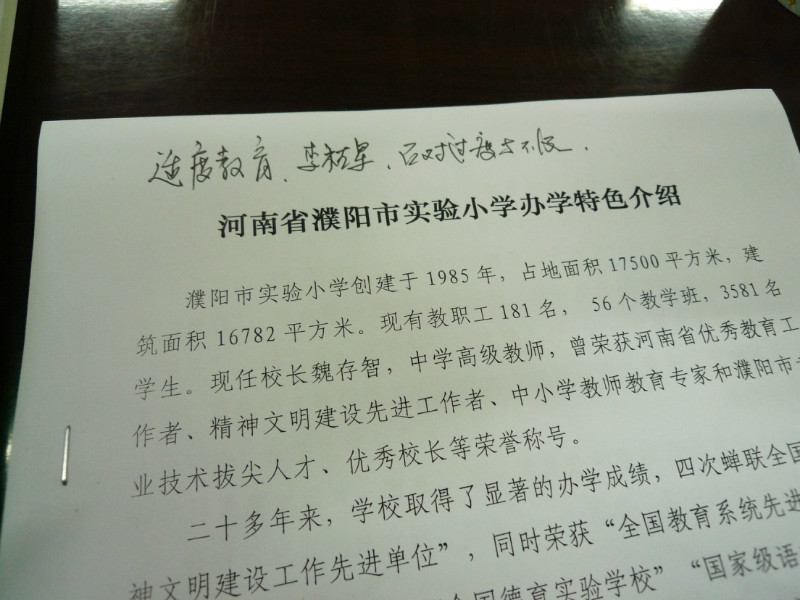 适度教育、李、只对过度与不及.
河南省濮阳市实验小学办学特色介绍
濮阳市实验小学创建于1985年，占地面积17500平方米，建
筑面积16782平方米。现有教职工181名，56个教学班，3581名
学生。现任校长魏存智，中学高级教师，曾荣获河南省优秀教育工
作者、精神文明建设先进工作者、中小学教师教育专家和濮阳市
业技术拔尖人才、优秀校长等荣誉称号。
二十多年来，学校取得了显著的办学成绩，四次蝉联全国
神文明建设工作先进单位”，同时荣获“全国教育系统先进
全国德育实验学校”“国家级语